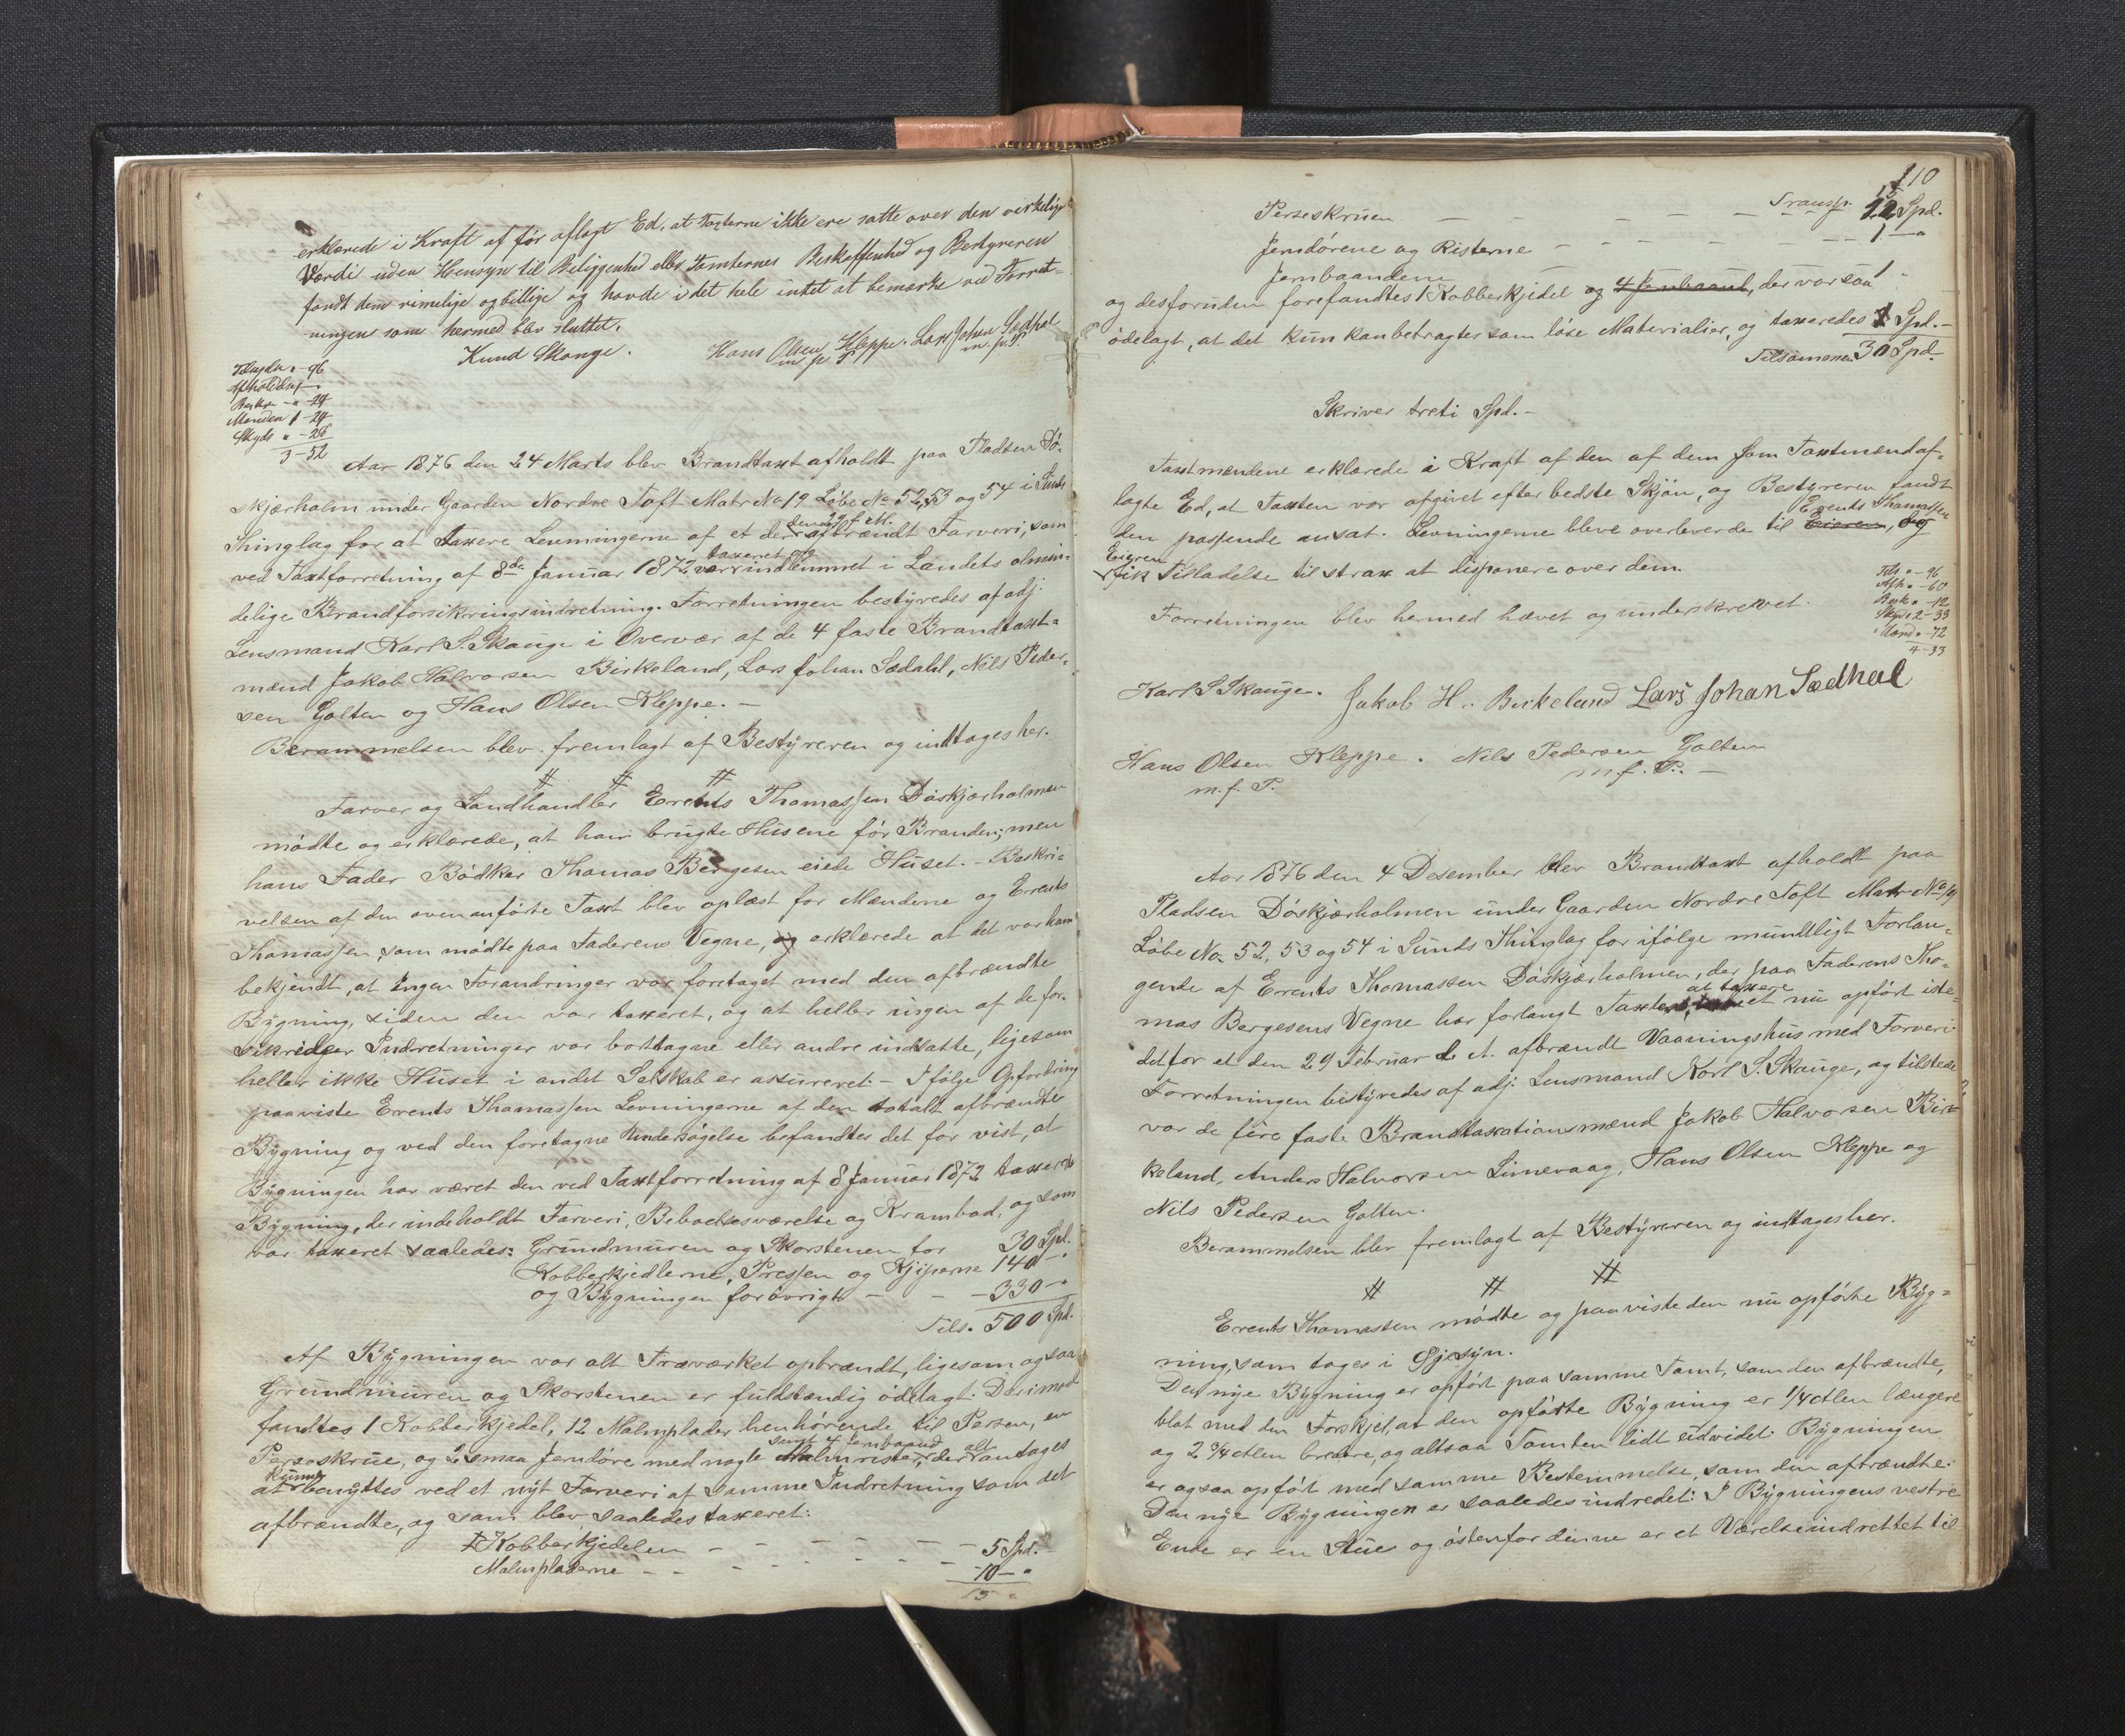 erklærede i Kraft af før aflagt Ed, at Taxterne ikke ere satte over den virkelige
Værdi uden Hensyn til Beliggenhed eller Tomternes Beskaffenhed og Bestyreren
fandt dem rimelige og billige og havde i det hele intet at bemærke ved Forret-
ningen som hermed blev sluttet.
Knud Skauge. Hans Olsen Kleppe. Lars Johan Sædhal
m. p. P. m. p. P.
Tilsyden " - 96
Afholdelse 1 - "
Beskr. - " - 24
Mændene 1 - 24
Skyds " - 28
3 - 52
Aar 1876 den 24 Marts blev Brandtaxt afholdt paa Pladsen Dø-
skjærholm under Gaarden Nordre Toft Matr No 19 Løbe No 52, 53 og 54 i Sunds
Thinglag for at taxere Levningerne af et der den 29 f. M. afbrændt Farveri, som
ved Taxtforretning af 8de Januar 1872 var taxeret og indlemmet i Landets almin-
delige Brandforsikringsindretning. Forretningen bestyredes af adj.
Lensmand Karl S. Skauge i Overvær af de 4 faste Brandtaxt-
mænd Jakob Halvorsen Birkeland, Lars Johan Sædahl, Nils Peder-
sen Golten og Hans Olsen Kleppe. -
Berammelsen blev fremlagt af Bestyreren og indtages her.
# # #
Farver og Landhandler Erents Thomassen Døskjærholmen
mødte og erklærede, at han brugte Husene før Branden; men
hans Fader Bødker Thomas Bergesen eiede Huset. - Beskri-
velsen af den ovenanførte Taxt blev oplæst for Mændene og Erents
Thomassen som mødte paa Faderens Vegne, og erklærede at det var ham
bekjendt, at ingen Forandringer var foretaget med den afbrændte
Bygning, siden den var taxeret, og at heller ingen af de for-
sikrede Indretninger var borttagne eller andre indsatte, ligesom
heller ikke Huset i andet Selskab er assureret. - Ifølge Opfordring
paaviste Erents Thomassen Levningerne af den totalt afbrændte
Bygning og ved den foretagne Undersøgelse befandtes det for vist, at
Bygningen har været den ved Taxtforretning af 8 Januar 1872 taxerede
Bygning, der indeholdt Farveri, Beboelsesværelse og Krambod, og som
var taxeret saaledes: Grundmuren og Skorstenen for 30 Spd.
Kobberkjedlerne, Pressen og Kyperne 140 - "
og Bygningen forøvrigt - - - 330 - "
Tils. 500 Spd.
Af Bygningen var alt Træværket opbrændt, ligesom ogsaa
Grundmuren og Skorstenen er fuldstændig ødelagt. Derimod
fandtes 1 Kobberkjedel, 12 Malmplader henhørende til Persen, en
Perseskrue, og 2 smaa Jerndøre med nogle Malmrister, samt 4 Jernbaand der alt antages
at kunne benyttes ved et nyt Farveri af samme Indretning som det
afbrændte, og som blev saaledes taxeret:
1 Kobberkjedelen - - - - - 5 Spd.
Malmpladerne - - - - - - 10 - "
15 "
110
Transp. 15 Spd.
Perseskruen - - - - - 12
Jerndørene og Risterne - - - - - 1 - "
Jernbaandene - 1 "
og desforuden forefandtes 1 Kobberkjedel og 4 Jernbaand, der var saa
ødelagt, at det kun kan betragtes som løse Materialier, og taxeredes 1 Spd. -
Tilsammen 30 Spd.
Skriver treti Spd. -
Taxtmændene erklærede i Kraft af den af dem som Taxtmænd af-
lagte Ed, at Taxten var afgivet efter bedste Skjøn, og Bestyreren fandt
den passende ansat. Levningerne bleve overleverede til Eieren, Erents Thomassen og
Eieren fik Tilladelse til strax at disponere over dem.
Forretningen blev hermed hævet og underskrevet.
Tils " - 96
Afh. " - 60
Besk. " - 12
Skyds 2 - 33
Mænd " - 72
4 - 33
Karl S Skauge. Jakob H. Birkeland Lars Johan Sædhal
Hans Olsen Kleppe. Nils Pedersen Golten
m. f. P. m. f. P. -
Aar 1876 den 4 Desember blev Brandtaxt afholdt paa
Pladsen Døskjærholmen under Gaarden Nordre Toft Matr No 19
Løbe No 52, 53 og 54 i Sunds Thinglag for ifølge mundtligt Forlan-
gende af Erents Thomassen Døskjærholmen, der paa Faderens Tho-
mas Bergesens Vegne har forlangt Taxten, at taxere et nu opført iste-
detfor et den 29 Februar d. A. afbrændt Vaaningshus med Farveri
Forretningen bestyredes af adj. Lensmand Karl S. Skauge, og tilstede
var de fire faste Brandtaxationsmænd Jakob Halvorsen Bir-
keland, Anders Halvorsen Limevaag, Hans Olsen Kleppe og
Nils Pedersen Golten.
Berammelsen blev fremlagt af Bestyreren og indtages her.
# # #
Erents Thomassen mødte og paaviste den nu opførte Byg-
ning, som tages i Øjesyn.
Den nye Bygning er opført paa samme Tomt, som den afbrændte,
blot med den Forskjel, at den opførte Bygning er 1/4 Alen længere
og 2 3/4 Alen bredere, og altsaa Tomten lidt udvidet. Bygningen
er ogsaa opført med samme Bestemmelse, som den afbrændte.
Den nye Bygningen er saaledes indredet: I Bygningens vestre
Ende er en Stue og østenfor denne er et Værelse indrettet til